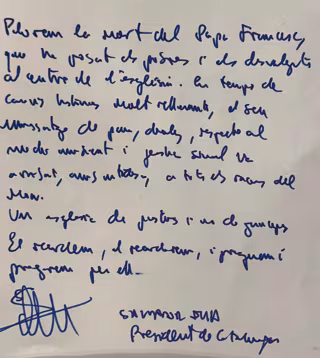 Plorem la mort del Papa Francesc,
que ha posat els pobres i els desvalguts
al centre de l'església. En temps de
canvis històrics molt rellevants, el seu
missatge de pau, diàleg, respecte al
medi ambient i justícia social ha
arribat, a tots els racons del
món.
Una església de gestos i no de
El recordem, el recordarem, i preguem i
pregarem per ell.
SALVADOR ILLA
President de Catalunya